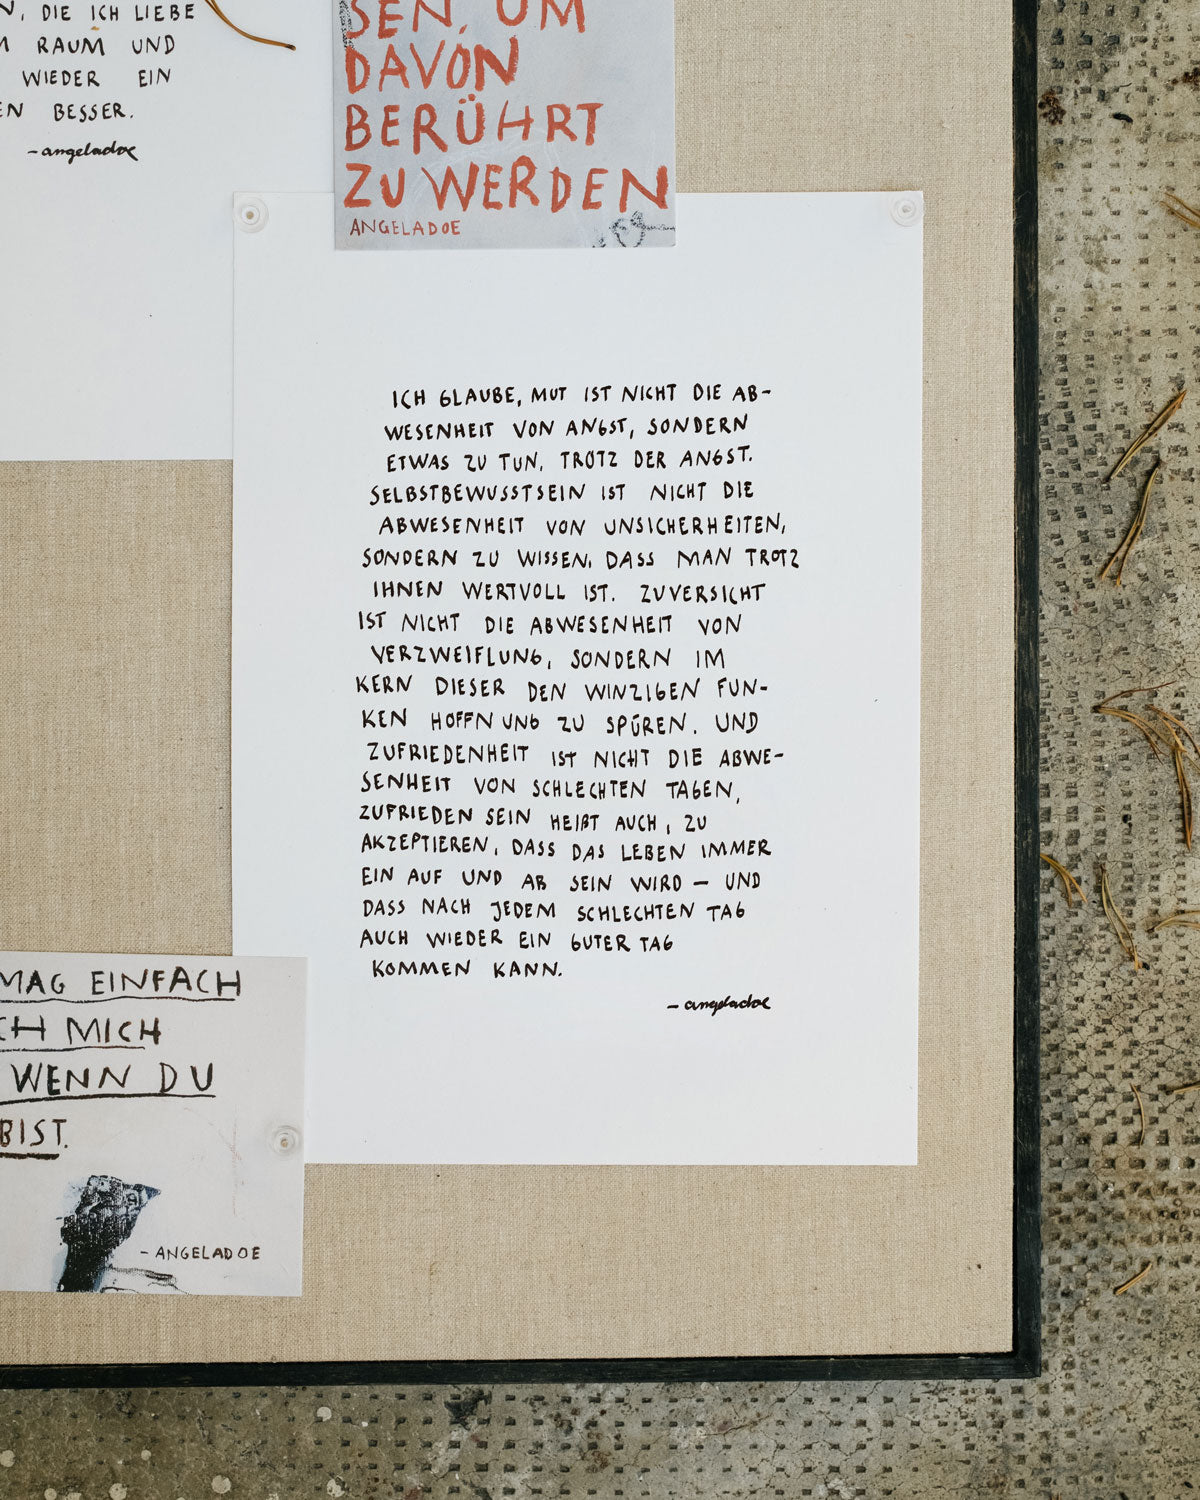 DIE ICH LIEBE
RAUM UND
WIEDER EIN
BESSER.
-angeladoe
SEN, UM
DAVON
BERÜHRT
ZU WERDEN
ANGELADOE
ICH GLAUBE, MUT IST NICHT DIE AB-
WESENHEIT VON ANGST, SONDERN
ETWAS ZU TUN, TROTZ DER ANGST.
SELBSTBEWUSSTSEIN IST NICHT DIE
ABWESENHEIT VON UNSICHERHEITEN,
SONDERN ZU WISSEN, DASS MAN TROTZ
IHNEN WERTVOLL IST. ZUVERSICHT
IST NICHT DIE ABWESENHEIT VON
VERZWEIFLUNG, SONDERN IM
KERN DIESER DEN WINZIGEN FUN-
KEN HOFFNUNG ZU SPÜREN. UND
ZUFRIEDENHEIT IST NICHT DIE ABWE-
SENHEIT VON SCHLECHTEN TAGEN,
ZUFRIEDEN SEIN HEIßT AUCH, ZU
AKZEPTIEREN, DASS DAS LEBEN IMMER
EIN AUF UND AB SEIN WIRD – UND
DASS NACH JEDEM SCHLECHTEN TAG
AUCH WIEDER EIN GUTER TAG
KOMMEN KANN.
-angeladoe
MAG EINFACH
CH MICH
WENN DU
BIST.
-ANGELADOE